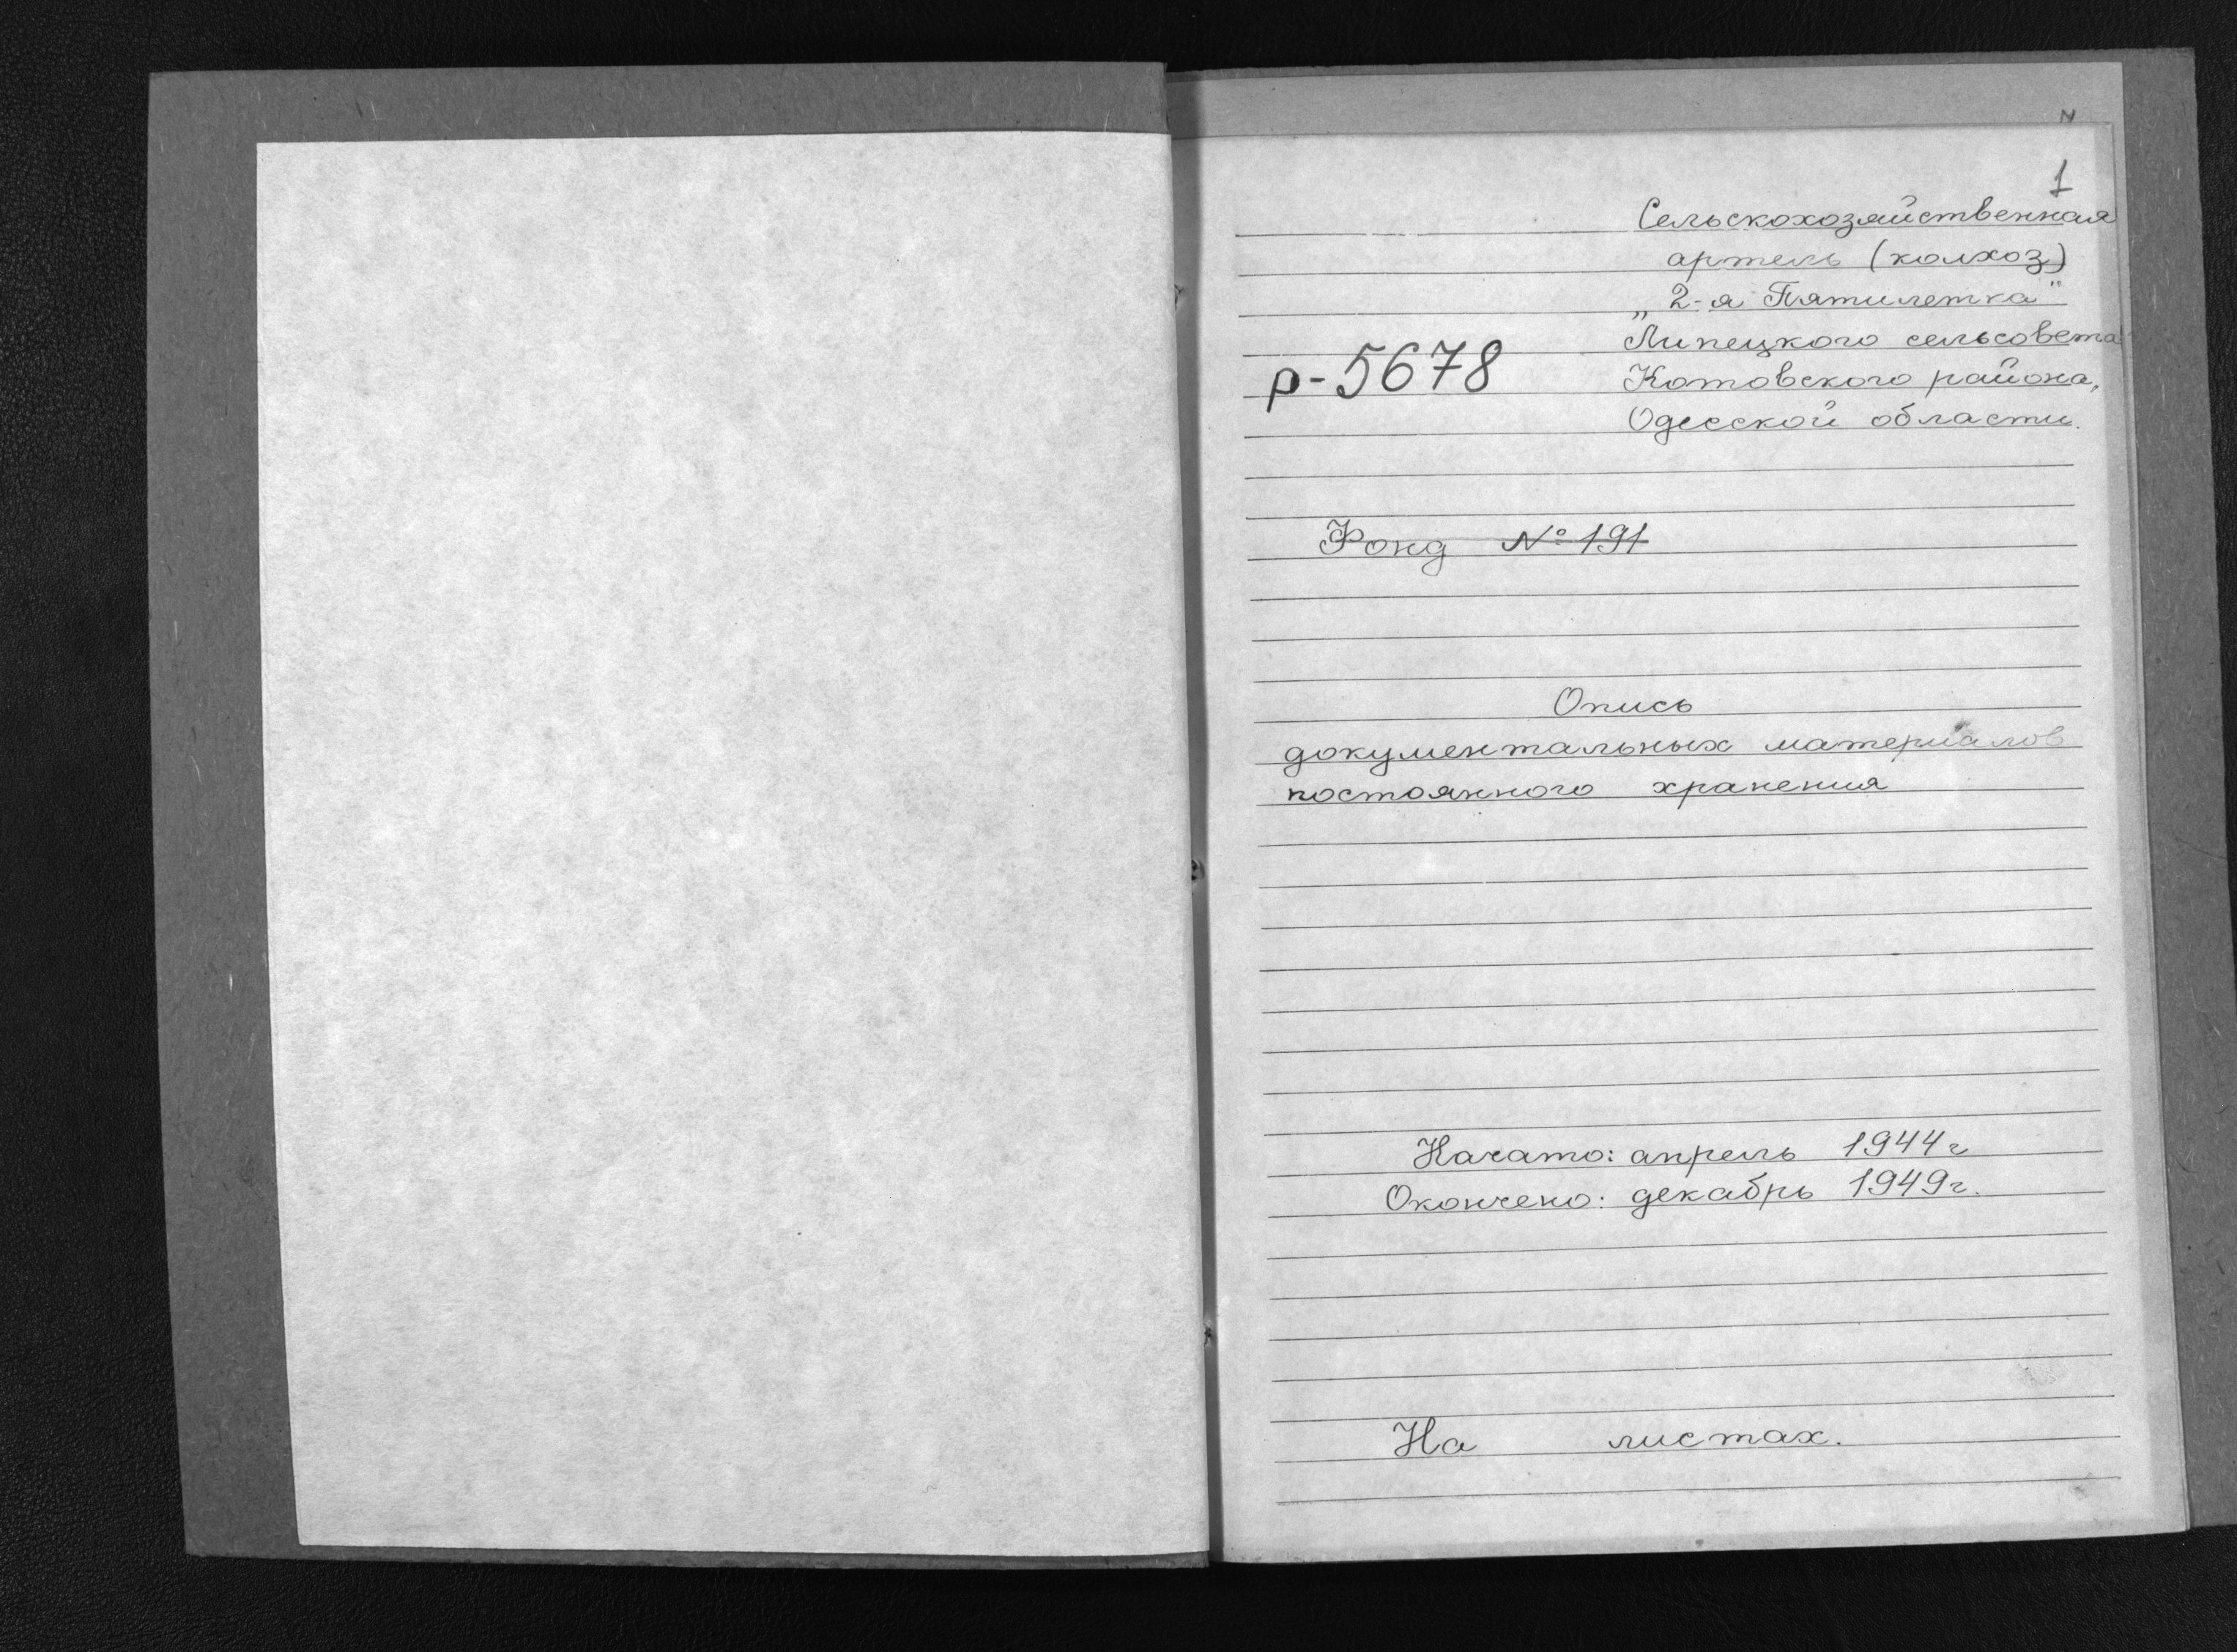 1
Сельскохозяйственная
артель (колхоз)
„2-я Пятилетка"
Липецкого сельсовета
р-5678
Котовского района,
Одесской области.
Фонд № 191
Опись
документальных материалов
постоянного хранения
Начато: апрель 1944 г
Окончено: декабрь 1949 г.
На листах.